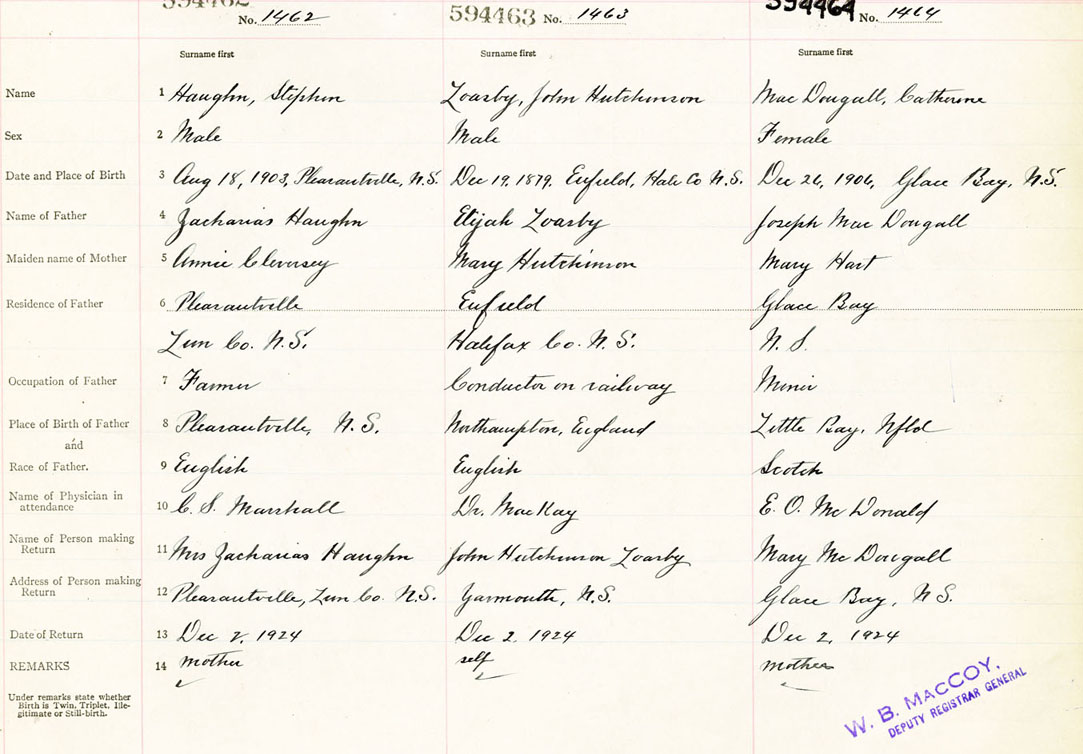 594462 No. 1462 594463 No. 1463 594464 No. 1464
Surname first Surname first Surname first
Name 1 Haughn, Stephen Zoarby, John Hutchinson Mac Dougall, Catherine
Sex 2 Male Male Female
Date and Place of Birth 3 Aug 18, 1903, Pleasantville, N.S. Dec 19, 1879, Enfield, Co N.S. Dec 26, 1906, Glace Bay, N.S.
Name of Father 4 Zacharias Haughn Elijah Zoarby Joseph Mac Dougall
Maiden name of Mother 5 Annie Cleversey Mary Hutchinson Mary Hart
Residence of Father 6 Pleasantville Enfield Glace Bay
Lun Co. N.S. Halifax Co. N.S. N.S.
Occupation of Father 7 Farmer Conductor on railway Miner
Place of Birth of Father 8 Pleasantville, N.S. Northampton, England Little Bay, Nfld
and
Race of Father. 9 English English Scotch
Name of Physician in
attendance 10 C. S. Marshall Dr. MacKay E. O. McDonald
Name of Person making
Return 11 Mrs Zacharias Haughn John Hutchinson Zoarby Mary McDougall
Address of Person making
Return 12 Pleasantville, Lun Co. N.S. Yarmouth, N.S. Glace Bay, N.S.
Date of Return 13 Dec 2, 1924 Dec 2, 1924 Dec 2, 1924
REMARKS 14 mother self mother
Under remarks state whether
Birth is Twin, Triplet, Ille-
gitimate or Still-birth.
W. B. MACCOY,
DEPUTY REGISTRAR GENERAL